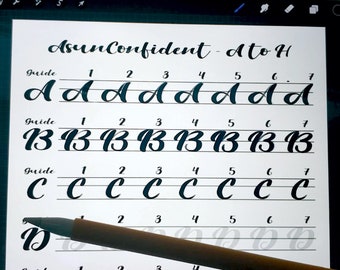 AsunConfident - A to H
guide 1 2 3 4 5 6 7
A A A A A A A A
guide 1 2 3 4 5 6 7
B B B B B B B B
guide 1 2 3 4 5 6 7
C C C C C C C C
guide 1 2 3 4 5 6 7
D D D D D D D D